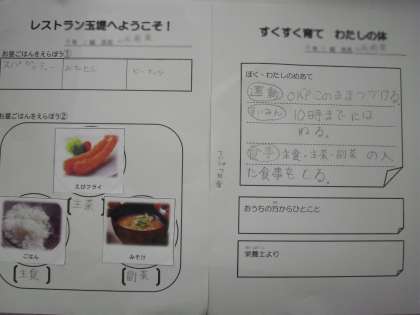 レストラン玉堤へようこそ！
お昼ごはんをえらぼう①
お昼ごはんをえらぼう②
えびフライ
主菜
ごはん
みそ汁
主食
副菜
すくすく育て　わたしの体
ぼく・わたしのめあて
運動 OK! このままつづける。
すいみん 10時までには
ねる。
食事 主食・主菜・副菜の入
た食事をとる。
おうちの方からひとこと
栄養士より